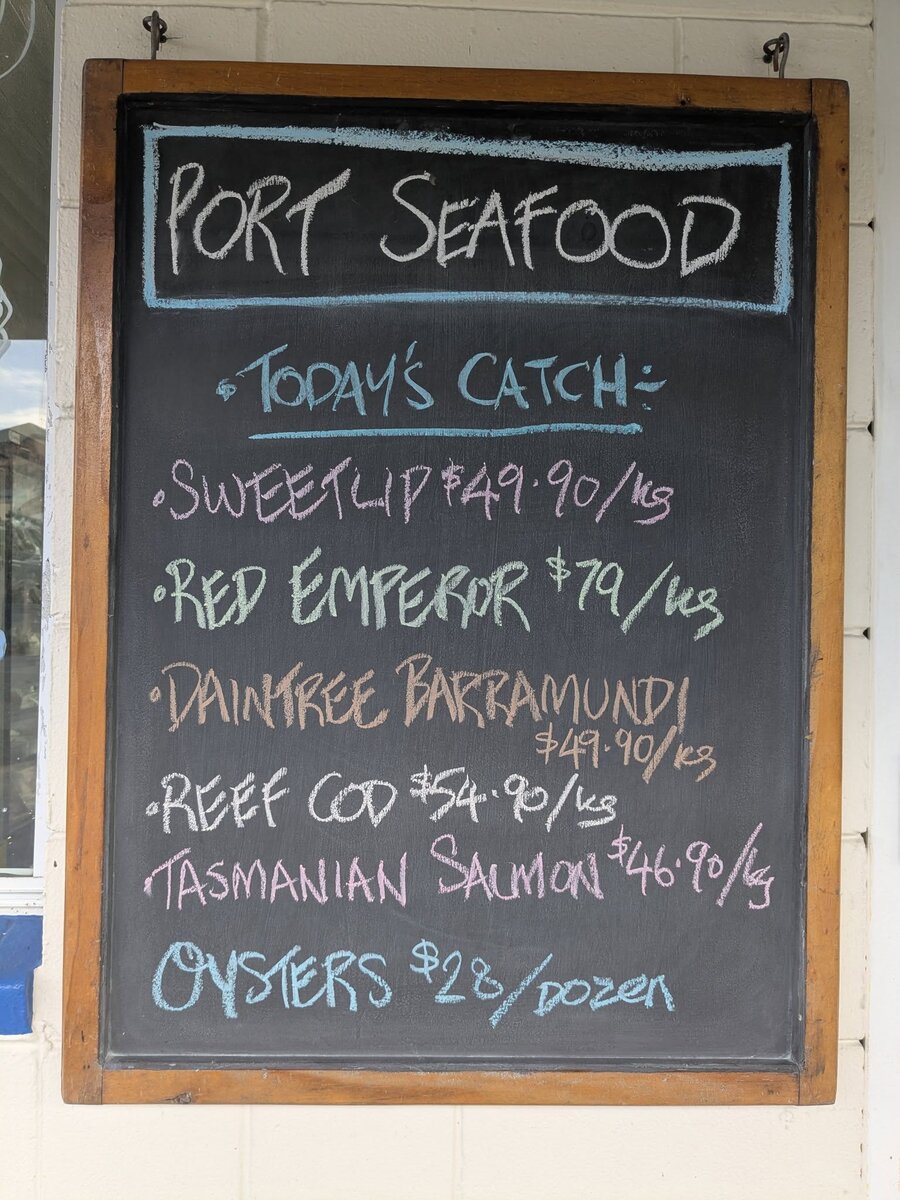 PORT SEAFOOD
TODAY'S CATCH:
• SWEETLIP $49.90/kg
• RED EMPEROR $79/kg
• DAINTREE BARRAMUNDI
$49.90/kg
• REEF COD $54.90/kg
• TASMANIAN SALMON $46.90/kg
OYSTERS $28/DOZEN